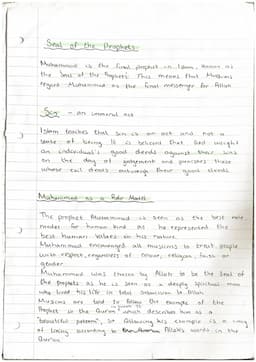 Seal of the Prophets
Muhammad is the final prophet in Islam, known as
the Seal of the Prophets. This means that Muslims
regard Muhammad as the final messenger for Allah
Sin - an immoral act
Islam teaches that sin is an act and not a
state of being. It is believed that God weighs
an individual's good deeds against their sins
on the day of judgement and punishes those
whose evil deeds outweigh their good deeds.
Muhammad as a Role Model
The prophet Muhammad is seen as the best role
model for human kind as he represented the
best human values in his nature.
Muhammad encouraged all muslims to treat people
with respect, regardless of colour, religion, faith or
gender.
Muhammad was chosen by Allah to be the seal of
the prophets as he is seen as a deeply spiritual man
who lived his life in total submission to Allah.
Muslims are told to follow the example of the
Prophet in the Quran which describes him as a
"beautiful pattern", so following his example is a way
of living according to Allah's words in the
Quran